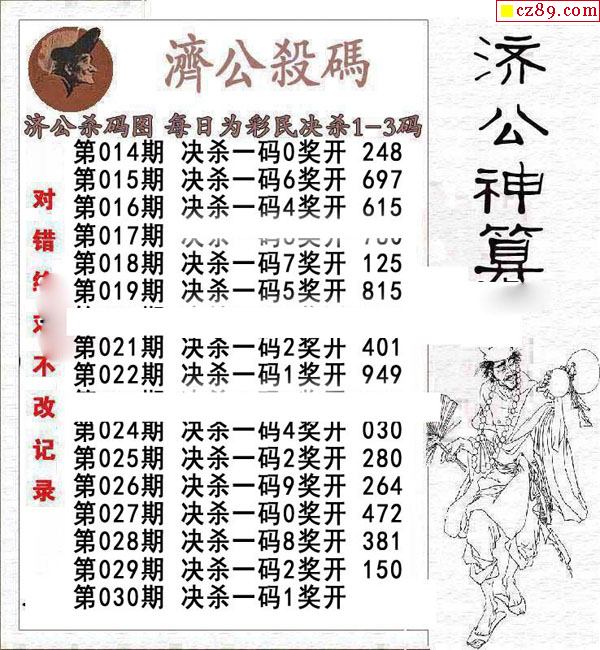 cz89.com
濟公殺碼
济公杀码图 每日为彩民决杀1-3码
第014期 决杀一码0奖开 248
第015期 决杀一码6奖开 697
第016期 决杀一码4奖开 615
第017期
第018期 决杀一码7奖开 125
第019期 决杀一码5奖开 815
第021期 决杀一码2奖开 401
第022期 决杀一码1奖开 949
第024期 决杀一码4奖开 030
第025期 决杀一码2奖开 280
第026期 决杀一码9奖开 264
第027期 决杀一码0奖开 472
第028期 决杀一码8奖开 381
第029期 决杀一码2奖开 150
第030期 决杀一码1奖开
对错 不改记录
济公神算